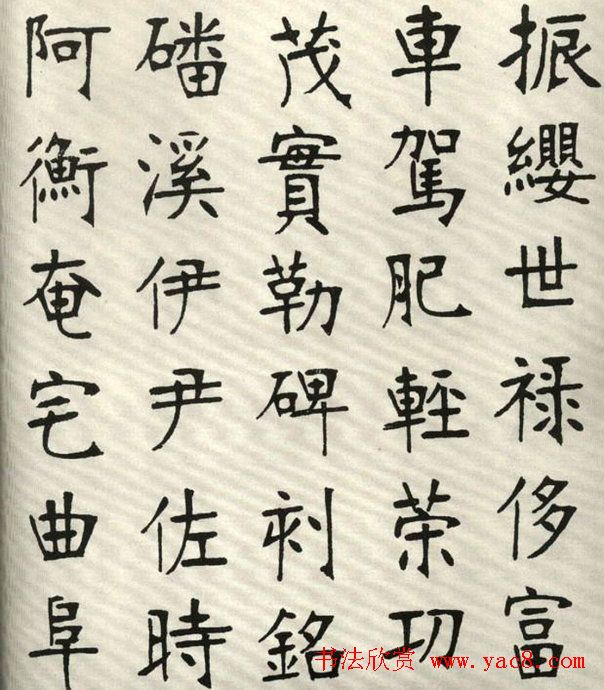 振纓世禄侈富
車駕肥輕策功
茂實勒碑刻銘
磻溪伊尹佐時
阿衡奄宅曲阜
书法欣赏 www.yac8.com